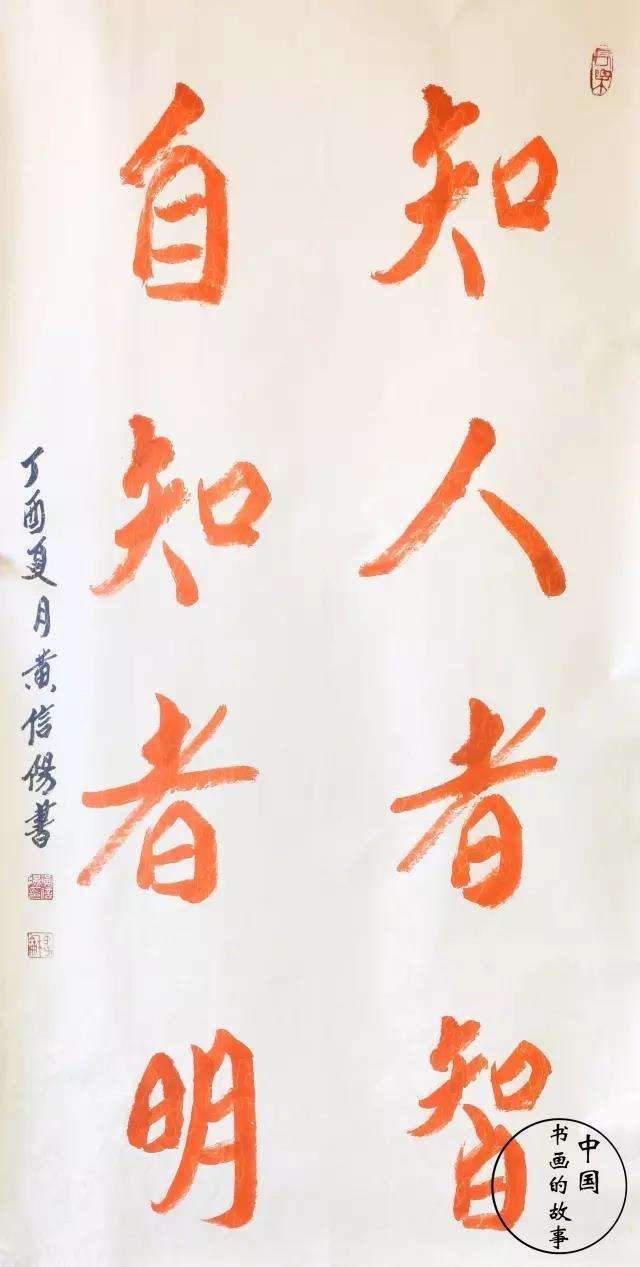 知人者智
自知者明
丁酉夏月黄信陽書
中国
书画的故事